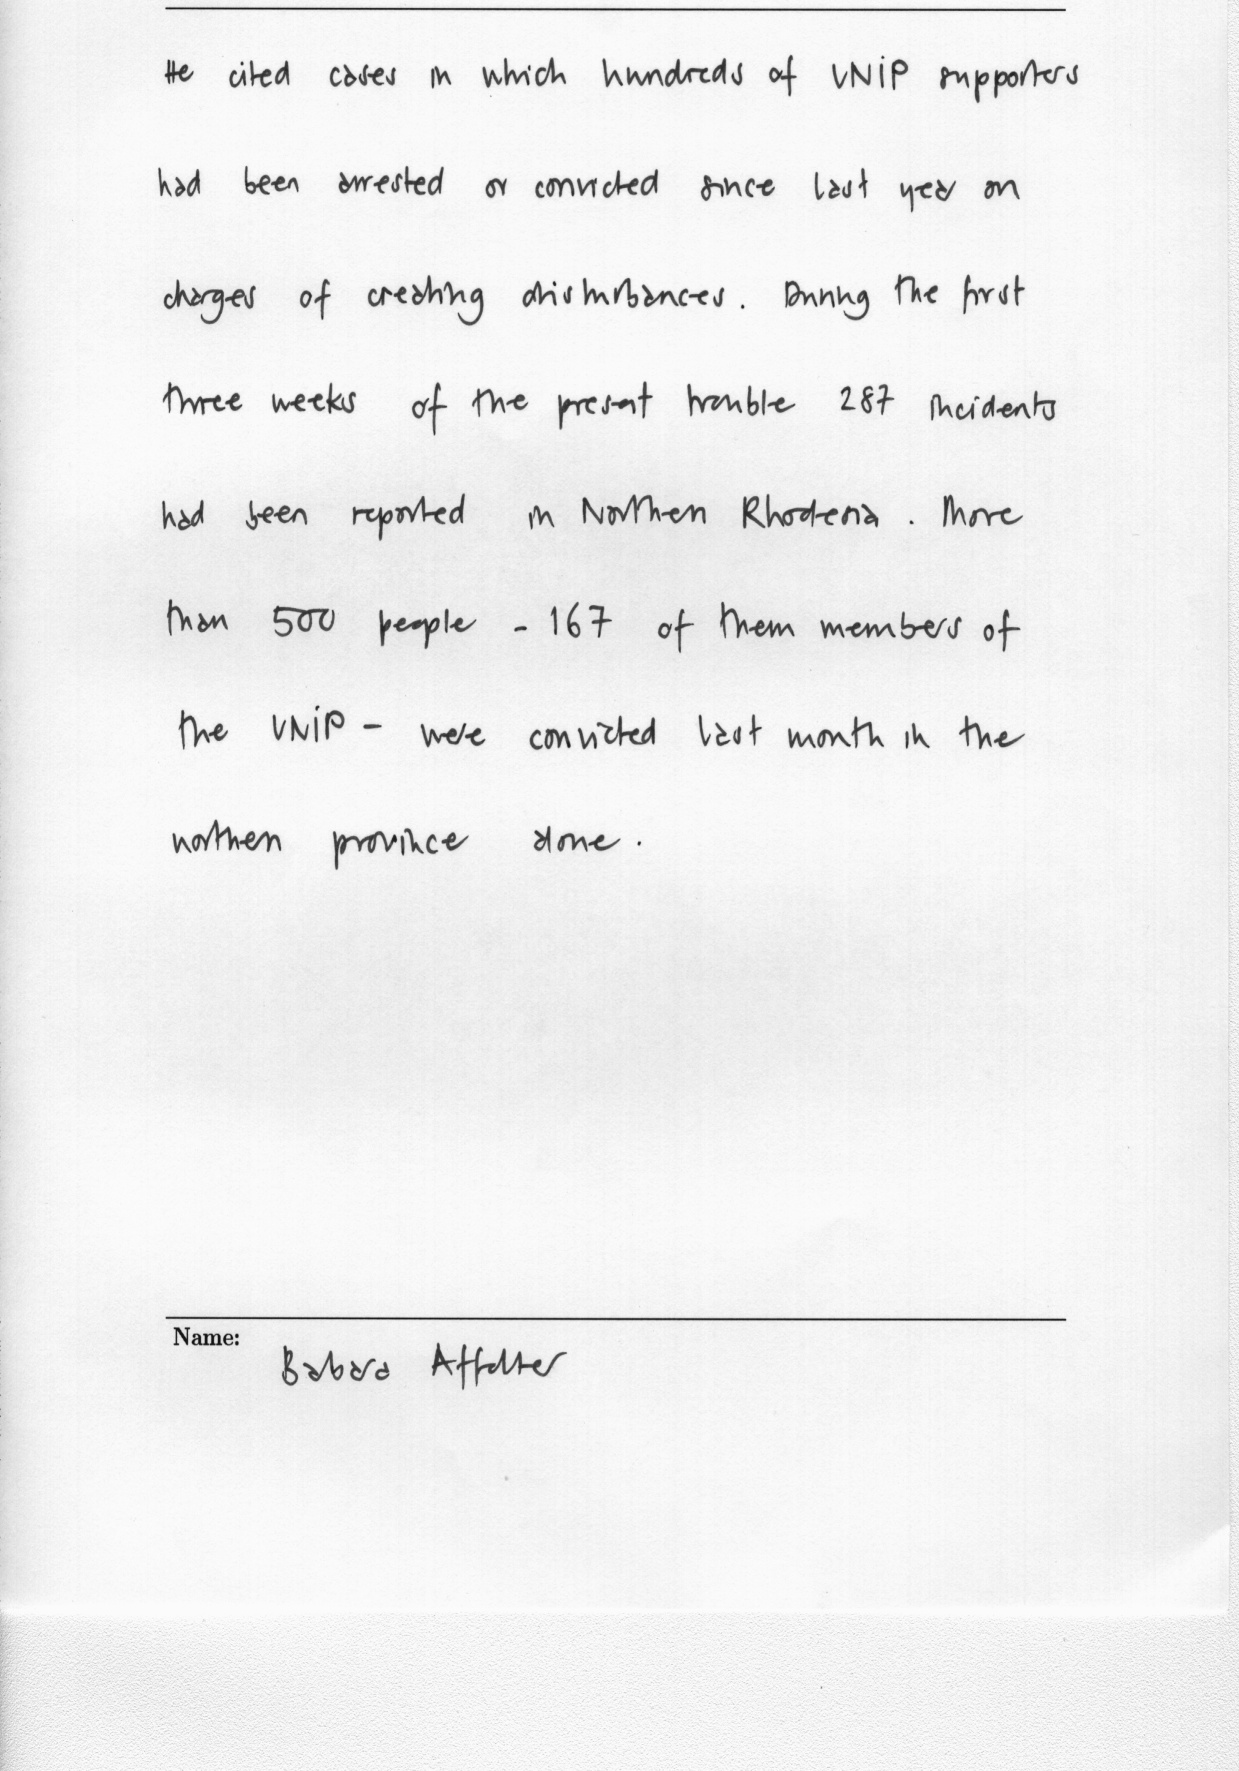 He cited cases in which hundreds of UNiP supporters
had been arrested or convicted since last year on
charges of creating disturbances. During the first
three weeks of the present trouble 287 incidents
had been reported in Northen Rhodesia. More
than 500 people - 167 of them members of
the UNiP - were convicted last month in the
northen province alone.
Name:
Babara Affolter